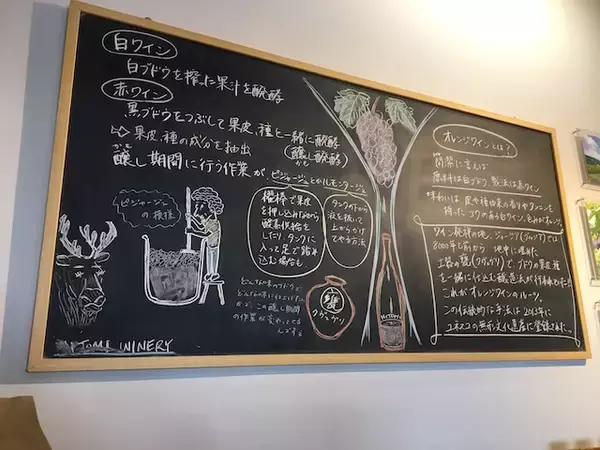 白ワイン
白ブドウを搾った果汁を醗酵
赤ワイン
黒ブドウをつぶして果皮、種と一緒に醗酵
⇨ 果皮、種の成分を抽出
(醸し醗酵)
かも
醸し期間に行う作業が、ピジャージュとルモンタージュ
ピジャージュ
の模様
櫂棒で果皮
を押し込みながら
酸素供給を
したり、タンクに
入って足で踏み
込む場合も
タンクの下から
液を抜いて
上からかけ
てやる方法
この醸し期間
クヴェヴリ
WINERY
オレンジワインとは?
簡潔に言えば
原料は白ブドウ 製法は赤ワイン
味わいは、皮や種由来の香りやタンニンを
持った、コクのある白ワイン。色がオレンジ
ワイン発祥の地、ジョージア(グルジア)では
8000年も前から 地中に埋めた
土器の甕(クヴェヴリ)で、ブドウの果皮、種
を一緒に仕込む醸造法が行われていた!!
これがオレンジワインのルーツ。
この伝統的な手法は2013年に
ユネスコの無形文化遺産に登録された。